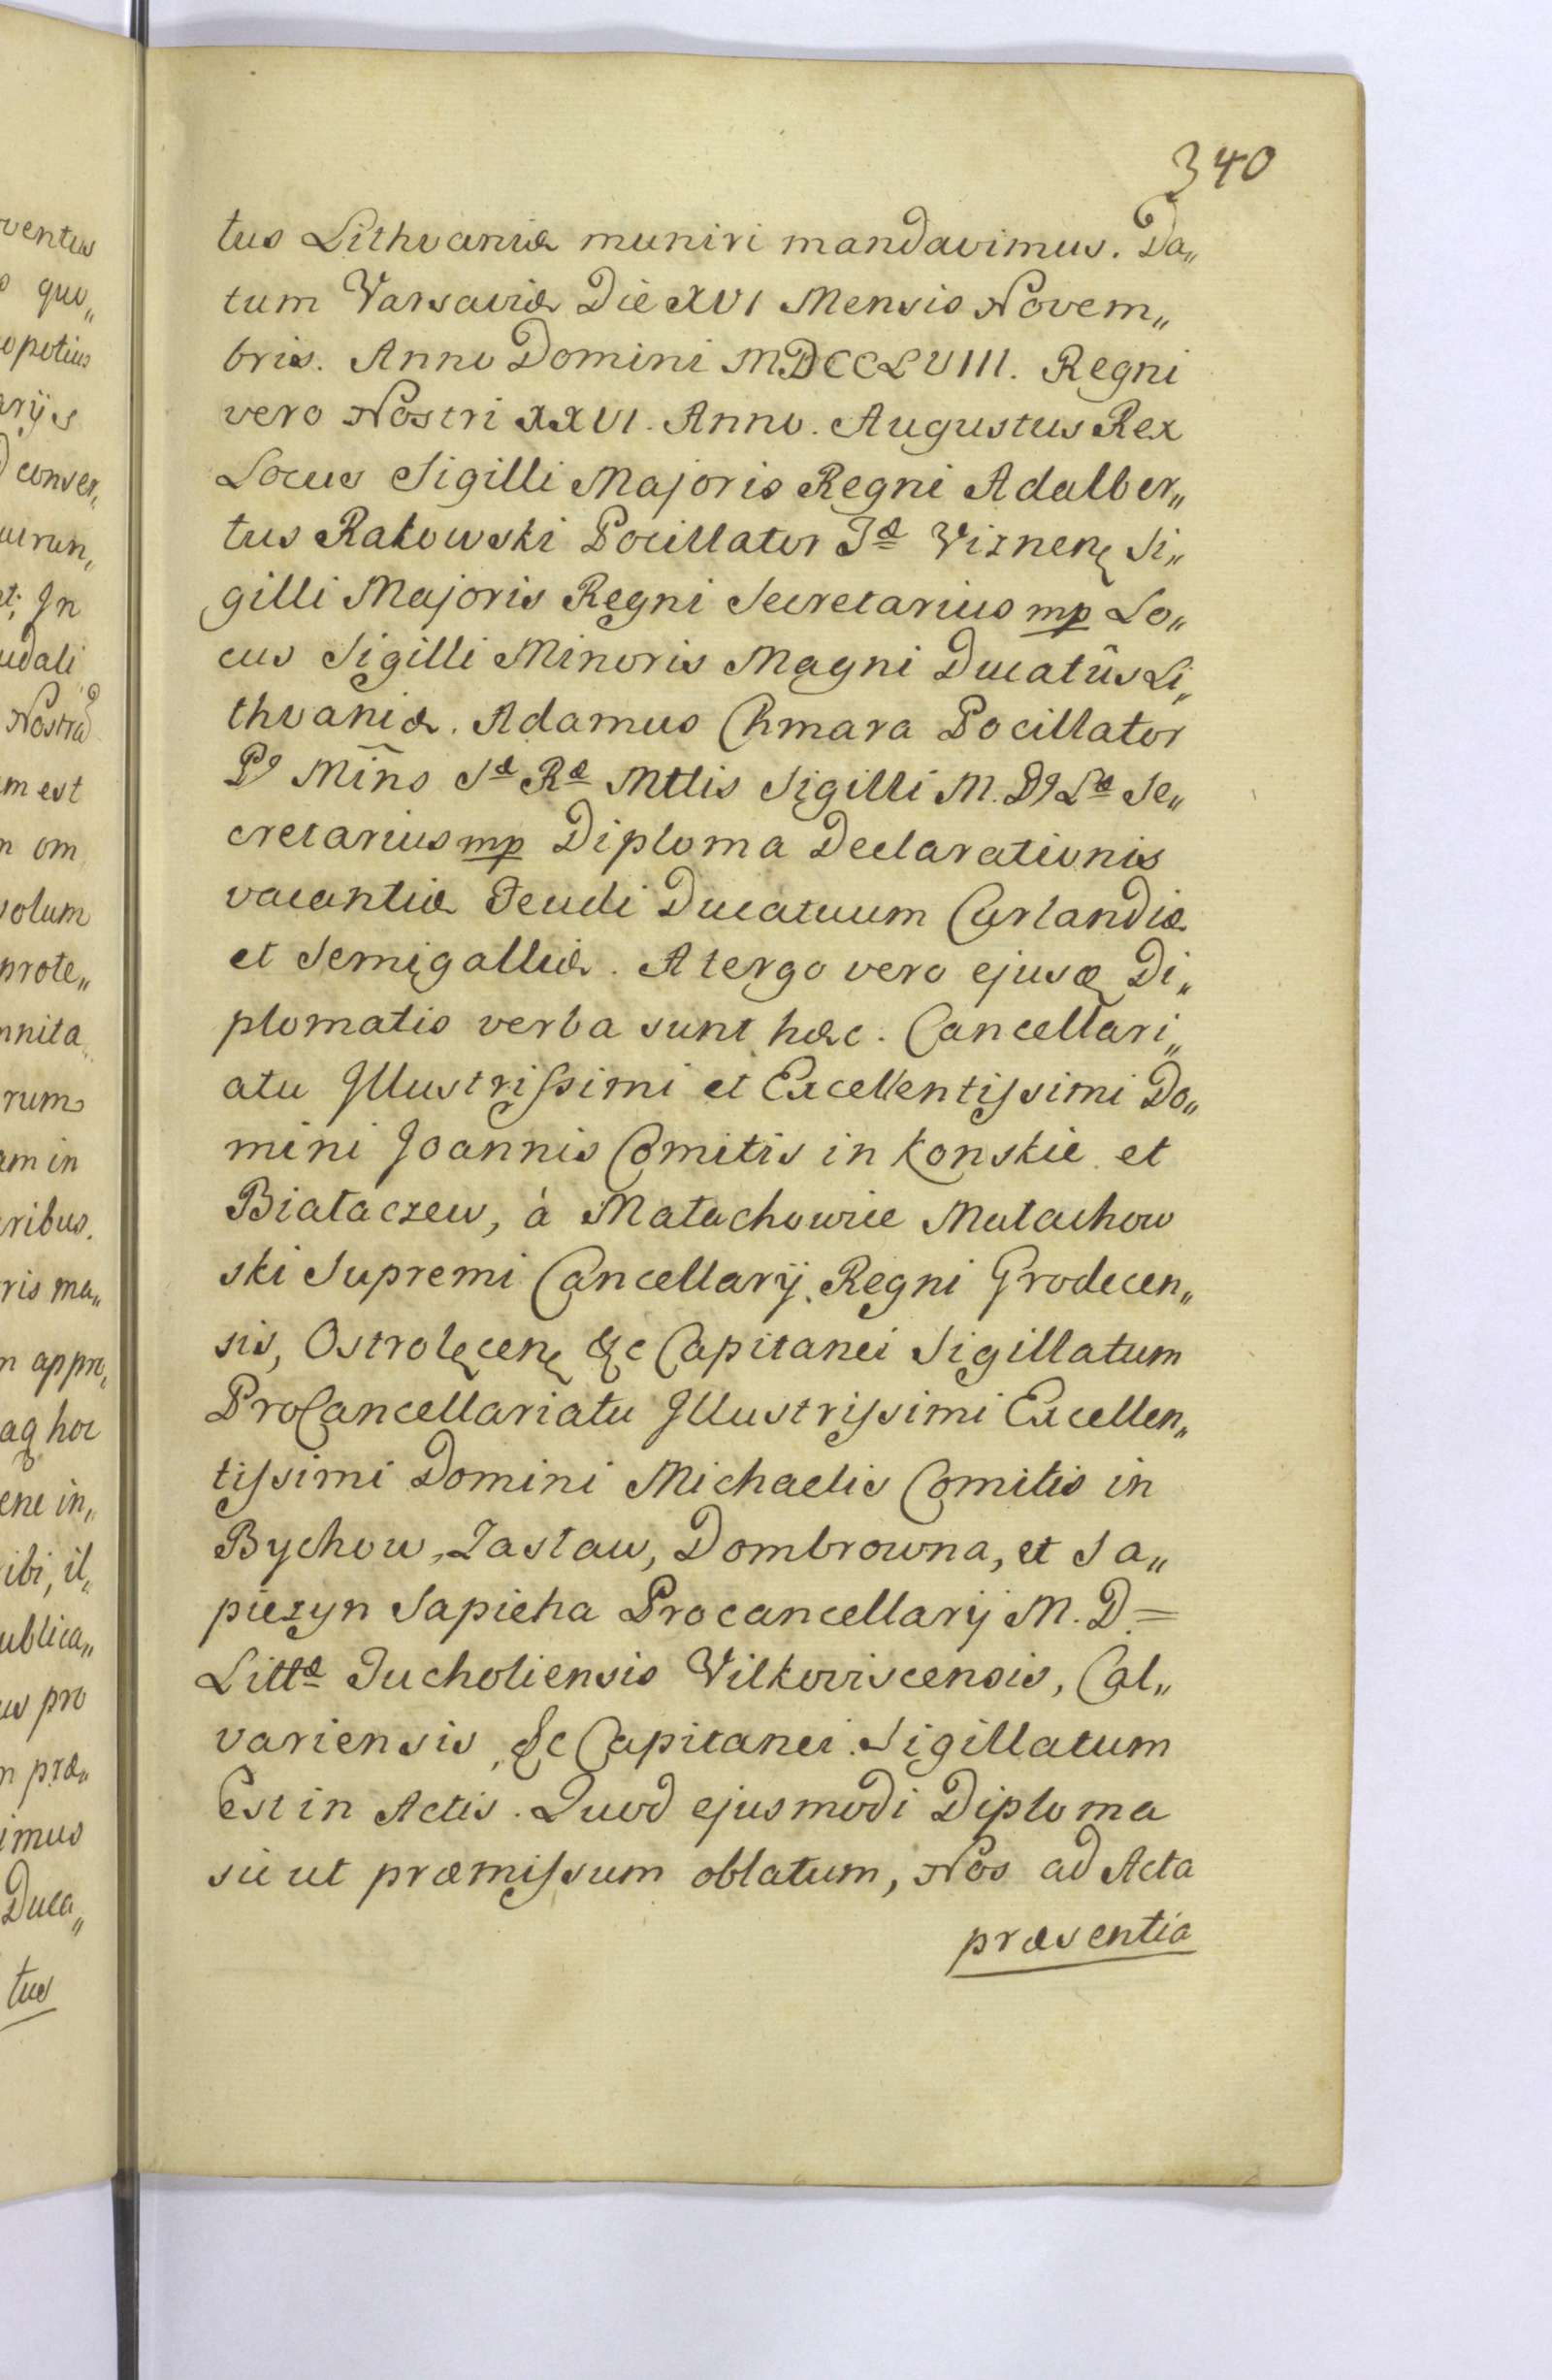 340
tus Lithvaniæ muniri mandavimus. Da„
tum Varsaviæ Die XVI Mensis Novem„
bris. Anno Domini MDCCLVIII. Regni
vero Nostri XXVI. Anno. Augustus Rex
Locus Sigilli Majoris Regni Adalber„
tus Rakowski Pocillator Tæ Viznenς Si„
gilli Majoris Regni Secretarius mp Lo„
cus Sigilli Minoris Magni Ducatûs Li„
thvaniæ. Adamus Chmara Pocillator
P9 Mins Sæ Ræ Mttis Sigilli M. D9 Læ Se„
cretarius mp Diploma Declarationis
vacantiæ Feudi Ducatuum Curlandiæ
et Semigalliæ. A tergo vero ejusd Di„
plomatis verba sunt hæc. Cancellari„
atu Illustrissimi et Excellentissimi Do„
mini Joannis Comitis in Konskie et
Białaczew, à Małachowice Małachow
ski Supremi Cancellarij Regni Grodecen„
sis, Ostrolęcenς &c Capitanei Sigillatum
ProCancellariatu Illustrissimi Excellen„
tissimi Domini Michaelis Comitis in
Bychow, Zasław, Dombrowna, et Sa„
piezyn Sapieha Procancellarij M. D. =
Littæ Tucholiensis Vilkoviscensis, Cal„
variensis, &c Capitanei. Sigillatum
Est in Actis. Quod ejusmodi Diploma
sic ut præmissum oblatum, Nos ad Acta
præsentia
ventus
quo„
potius
arijs
conver„
In
udali
Nostra
m est
om
solum
prote„
nnita
rum
am in
ribus.
ris ma„
appro„
hoc
ene in„
ibi, il„
ublica„
us pro
præ„
imus
Duca„
tus